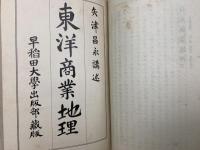 矢津昌永講述
東洋商業地理
早稲田大學出版部藏版